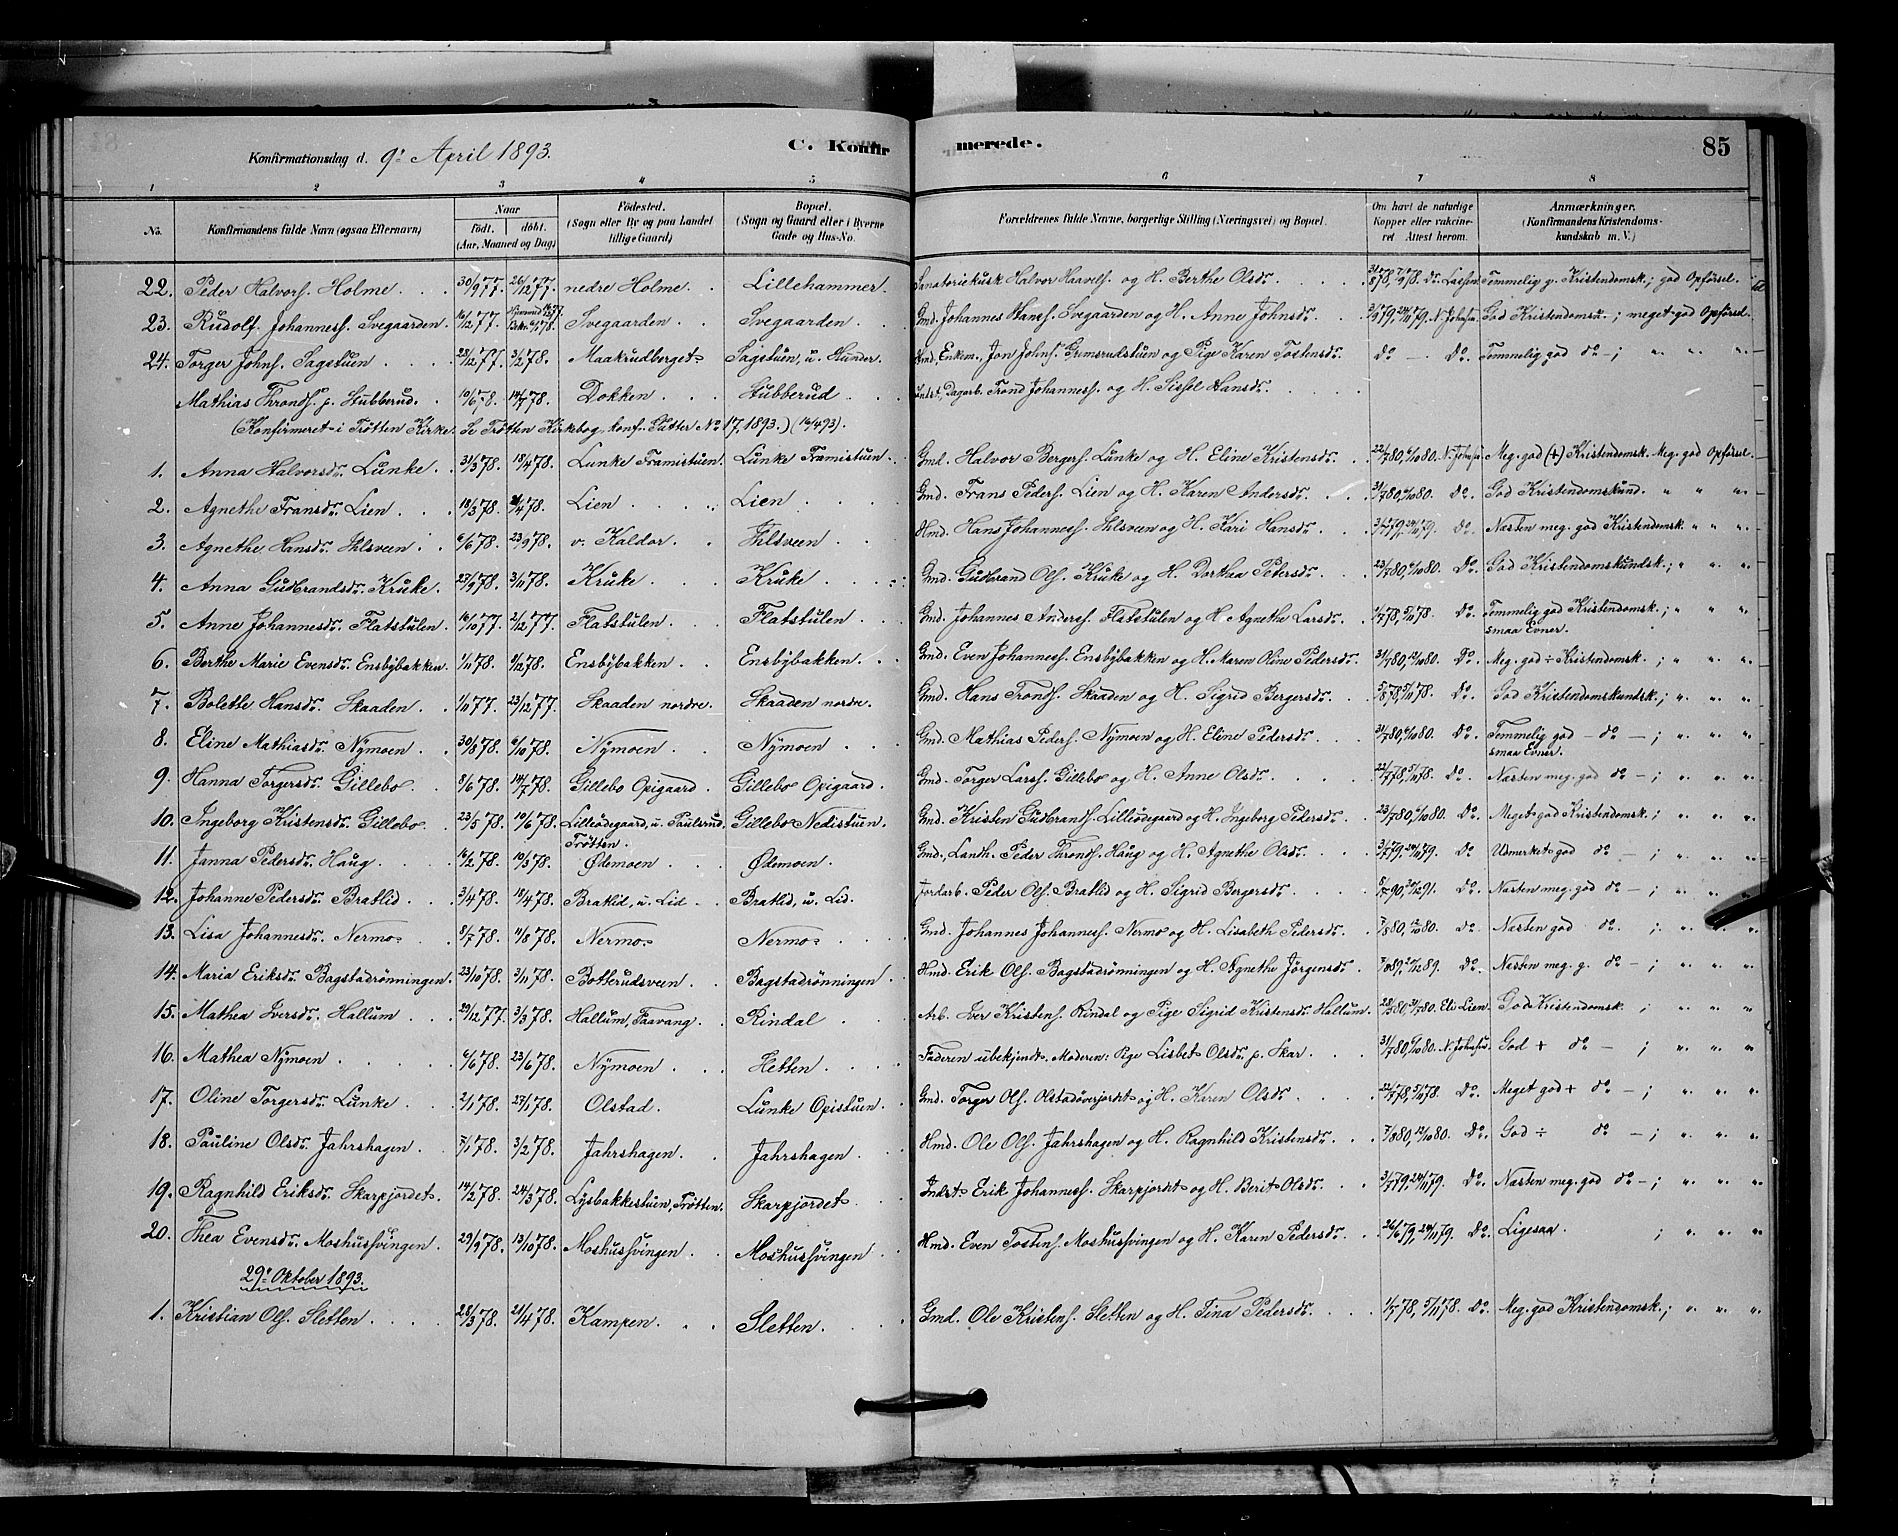 Konfirmationsdag d. 9de April 1893.
C. Konfirmerede.
85
1 2 3 4 5 6 7 8
No. Konfirmandens fulde Navn (ogsaa Efternavn) Naar født. døbt. (Aar, Maaned og Dag) Fødested. (Sogn eller By og paa Landet tillige Gaard) Bopæl. (Sogn og Gaard eller i Byerne Gade og Hus-No. Forældrenes fulde Navne, borgerlige Stilling (Næringsvei) og Bopæl. Om havt de naturlige Kopper eller vakcineret Attest herom. Anmærkninger. (Konfirmandens Kristendomskundskab m. V.)
22. Peder Halvors. Holme. 30/9 77. 26/12 77. nedre Holme. Lillehammer. Sanatoriekusk Halvor Haavels. og H. Berthe Olsdr. Temmelig g. Kristendomsk.; god Opførsel.
23. Rudolf Johanness. Svegaarden. 16/12 77. Svegaarden. Svegaarden. Gmd. Johannes Hans. Svegaarden og H. Anne Johnsdr. N. Johnsen. God Kristendomsk.; meget god Opførsel.
24. Torger Johns. Sagstuen. 28/12 77. 3/2 78. Maakrudberget. Sagstuen, u. Hunder. Hmd. Enkem. Jon Johns. Grimsrudstuen og Pige Karen Tostensdr. Do. — Do. Temmelig god do —; " " "
Mathias Thronds. p. Stubberud. 10/6 78. 14/7 78. Dokken. Stubberud. Indst. Dagarb. Trond Johanness. og H. Sissel Hansdr.
(Konfirmeret i Trøtten Kirke. Se Trøtten Kirkebog, konf. Gutter No 17, 1893.) (16/4 93).
1. Anna Halvorsdr. Lunke. 31/3 78. 18/4 78. Lunke Framistuen. Lunke Framistuen. Gmd. Halvor Bergers. Lunke og H. Eline Kristensdr. 22/7 80, 6/10 80. N. Johnsen. Meg. god (+) Kristendomsk. Meg. god Opførsel.
2. Agnethe Fransdr. Lien. 18/3 78. Lien. Lien. Gmd. Frans Peders. Lien og H. Karen Andersdr. 31/7 80, 6/10 80. Do. God Kristendomskund. " " "
3. Agnethe Hansdr. Ihlsveen. 6/6 78. 23/9 78. v. Kaldor. Ihlsveen. Hmd. Hans Johanness. Ihlsveen og H. Kari Hansdr. Do. Næsten meg. god Kristendomsk. " " "
4. Anna Gudbrandsdr. Kruke. 27/9 78. 3/11 78. Kruke. Kruke. Gmd. Gudbrand Ols. Kruke og H. Dorthea Petersdr. 23/7 80, 6/10 80. Do. God Kristendomskundsk.; " " "
5. Anne Johannesdr. Flatstulen. 16/10 77. 2/12 77. Flatstulen. Flatstulen. Gmd. Johannes Anderss. Flatstulen og H. Agnethe Larsdr. 1/7 78, 5/11 78. Do. Temmelig god Kristendomsk.; " " "
smaa Evner.
6. Berthe Marie Evensdr. Ensbybakken. 1/11 78. 8/12 78. Ensbybakken. Ensbybakken. Gmd. Even Johanness. Ensbybakken og H. Maren Oline Pedersdr. 31/7 80, 12/10 80. Do. Meg. god ÷ Kristendomsk.; " " "
7. Bolette Hansdr. Skaaden. 1/11 77. 23/12 77. Skaaden nordre. Skaaden nordre. Gmd. Hans Tronds. Skaaden og H. Sigrid Bergersdr. 5/8 78, 5/11 78. Do. God Kristendomskundsk.; " " "
8. Eline Mathiasdr. Nymoen. 30/8 78. 6/10 78. Nymoen. Nymoen. Gmd. Mathias Peders. Nymoen og H. Eline Pedersdr. 31/7 80, 6/10 80. Do. Temmelig god — do —; " " "
smaa Evner.
9. Hanna Torgersdr. Gillebo. 8/6 78. 14/7 78. Gillebo Opigaard. Gillebo Opigaard. Gmd. Torger Larss. Gillebo og H. Anne Olsdr. 22/7 78, 5/11 78. Do. Næsten meg. god do —; " " "
10. Ingeborg Kristensdr. Gillebo. 23/5 78. 10/6 78. Lilleødegaard, u. Paulsrud, Trøtten. Gillebo Nedistuen. Gmd. Kristen Gudbrands. Lilleødegaard og H. Ingeborg Pedersdr. 23/7 80, 6/10 80. Do. Meget god Kristendomsk.; " " "
11. Janna Pedersdr. Haug. 16/2 78. 10/3 78. Ødemoen. Ødemoen. Gmd., Landh. Peder Thronds. Haug og H. Agnethe Olsdr. 3/7 79, 24/11 79. Do Udmerket god do —; " " "
12. Johanne Pedersdr. Bratlid. 3/4 78. 18/4 78. Bratlid, u. Lid. Bratlid, u. Lid. Jordarb. Peder Ols. Bratlid og H. Sigrid Bergersdr. Do. Næsten meg. god do —; " "
13. Lisa Johannesdr. Nermo. 8/7 78. 11/8 78. Nermo. Nermo. Gmd. Johannes Johanness. Nermo og H. Lisabeth Pedersdr. 7/8 80, 12/10 80. Do. Næsten god do. ; " " "
14. Maria Eriksdr. Bagstadrønningen. 23/10 78. 3/11 78. Botterudsveen. Bagstadrønningen. Hmd. Erik Ols. Bagstadrønningen og H. Agnethe Jørgensdr. Do. Næsten meg. g. do —; " " "
15. Mathea Iversdr. Hallum. 29/12 77. 3/3 78. Hallum, Faavang. Rindal. Arb. Iver Kristens. Rindal og Pige Sigrid Kristensdr. Hallum. Eli Lien. God Kristendomsk. ; " " "
16. Mathea Nymoen. 6/6 78. 23/6 78. Nymoen. Hetten. Faderen ubekjendt. Moderen: Pige Lisbet Olsdr. p. Skar. 31/7 80, 6/10 80. N. Johnsen. God + do —; " " "
17. Oline Torgersdr. Lunke. 2/1 78. 27/1 78. Olstad. Lunke Opistuen. Gmd. Torger Ols. Olstadøverjordet og H. Karen Olsdr. 22/7 78, 5/11 78. Do. Meget god + do —; " " "
18. Pauline Olsdr. Jahrshagen. 7/1 78. 3/2 78. Jahrshagen. Jahrshagen. Hmd. Ole Ols. Jahrshagen og H. Ragnhild Kristensdr. 7/8 80, 12/10 80. Do. God ÷ do —; " " "
19. Ragnhild Eriksdr. Skarpjordet. 14/2 78. 24/3 78. Lysbakkestuen, Trøtten. Skarpjordet. Indst. Erik Johanness. Skarpjordet og H. Berit Olsdr. 3/7 79, 24/11 79. Do. Næsten meg. god do —; " " "
20. Thea Evensdr. Moshussvingen. 29/9 78. 13/10 78. Moshussvingen. Moshussvingen. Hmd. Even Tostens. Moshussvingen og H. Karen Pedersdr. 26/6 79, 24/11 79. Do. Ligesaa. ; " " "
29de Oktober 1893.
1. Kristian Ols. Sletten. 28/3 78. 21/4 78. Kampen. Sletten. Gmd. Ole Kristens. Sletten og H. Tina Pedersdr. 1/7 78, 5/11 78. Do. Meg. god Kristendomsk.; " " "